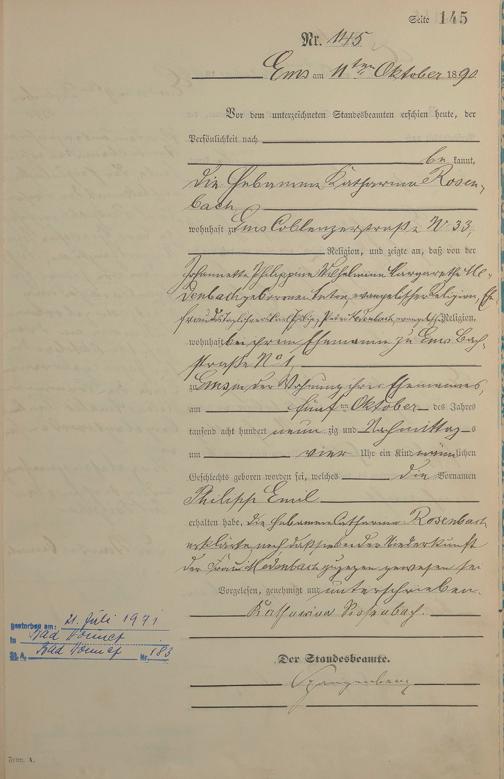 Seite 145
Nr. 145
Ems am 11ten Oktober 1890
Vor dem unterzeichneten Standesbeamten erschien heute, der
Persönlichkeit nach
be kannt,
die Hebamme Katharina Rosen-
bach
wohnhaft zu Ems Coblenzerstraße No 33,
Religion, und zeigte an, daß von der
Johannette Philippine Wilhelmine Margarethe
geborenen evangelischer Religion,
Religion,
wohnhaft bei ihrem Ehemanne zu Ems Bach-
straße No 1,
zu Ems in der Wohnung ihres Ehemannes,
am fünften Oktober des Jahres
tausend acht hundert neun zig und Nachmittags
um vier Uhr ein Kind männlichen
Geschlechts geboren worden sei, welches die Vornamen
Philipp Emil
erhalten habe. Die Hebamme Catharina Rosenbach
erklärte noch daß sie bei der Niederkunft
der Frau zugegen gewesen sei
Vorgelesen, genehmigt und unterschrieben.
Katharina Rosenbach.
gestorben am: 21. Juli 1971
in Bad Honnef
St. A. Bad Honnef Nr. 183
Der Standesbeamte.
Spangenberg
Form. A.